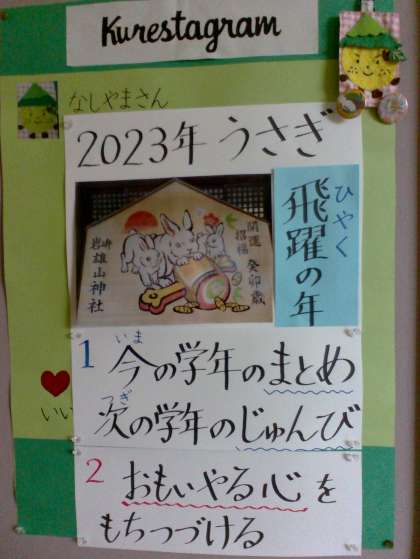 Kurestagram
なしやまさん
2023年 うさぎ
開運
招福
癸卯歳
岩雄山神社
ひやく
飛躍の年
いま
1 今の学年のまとめ
つぎ
次の学年のじゅんび
いい
2 おもいやる心を
もちつづける